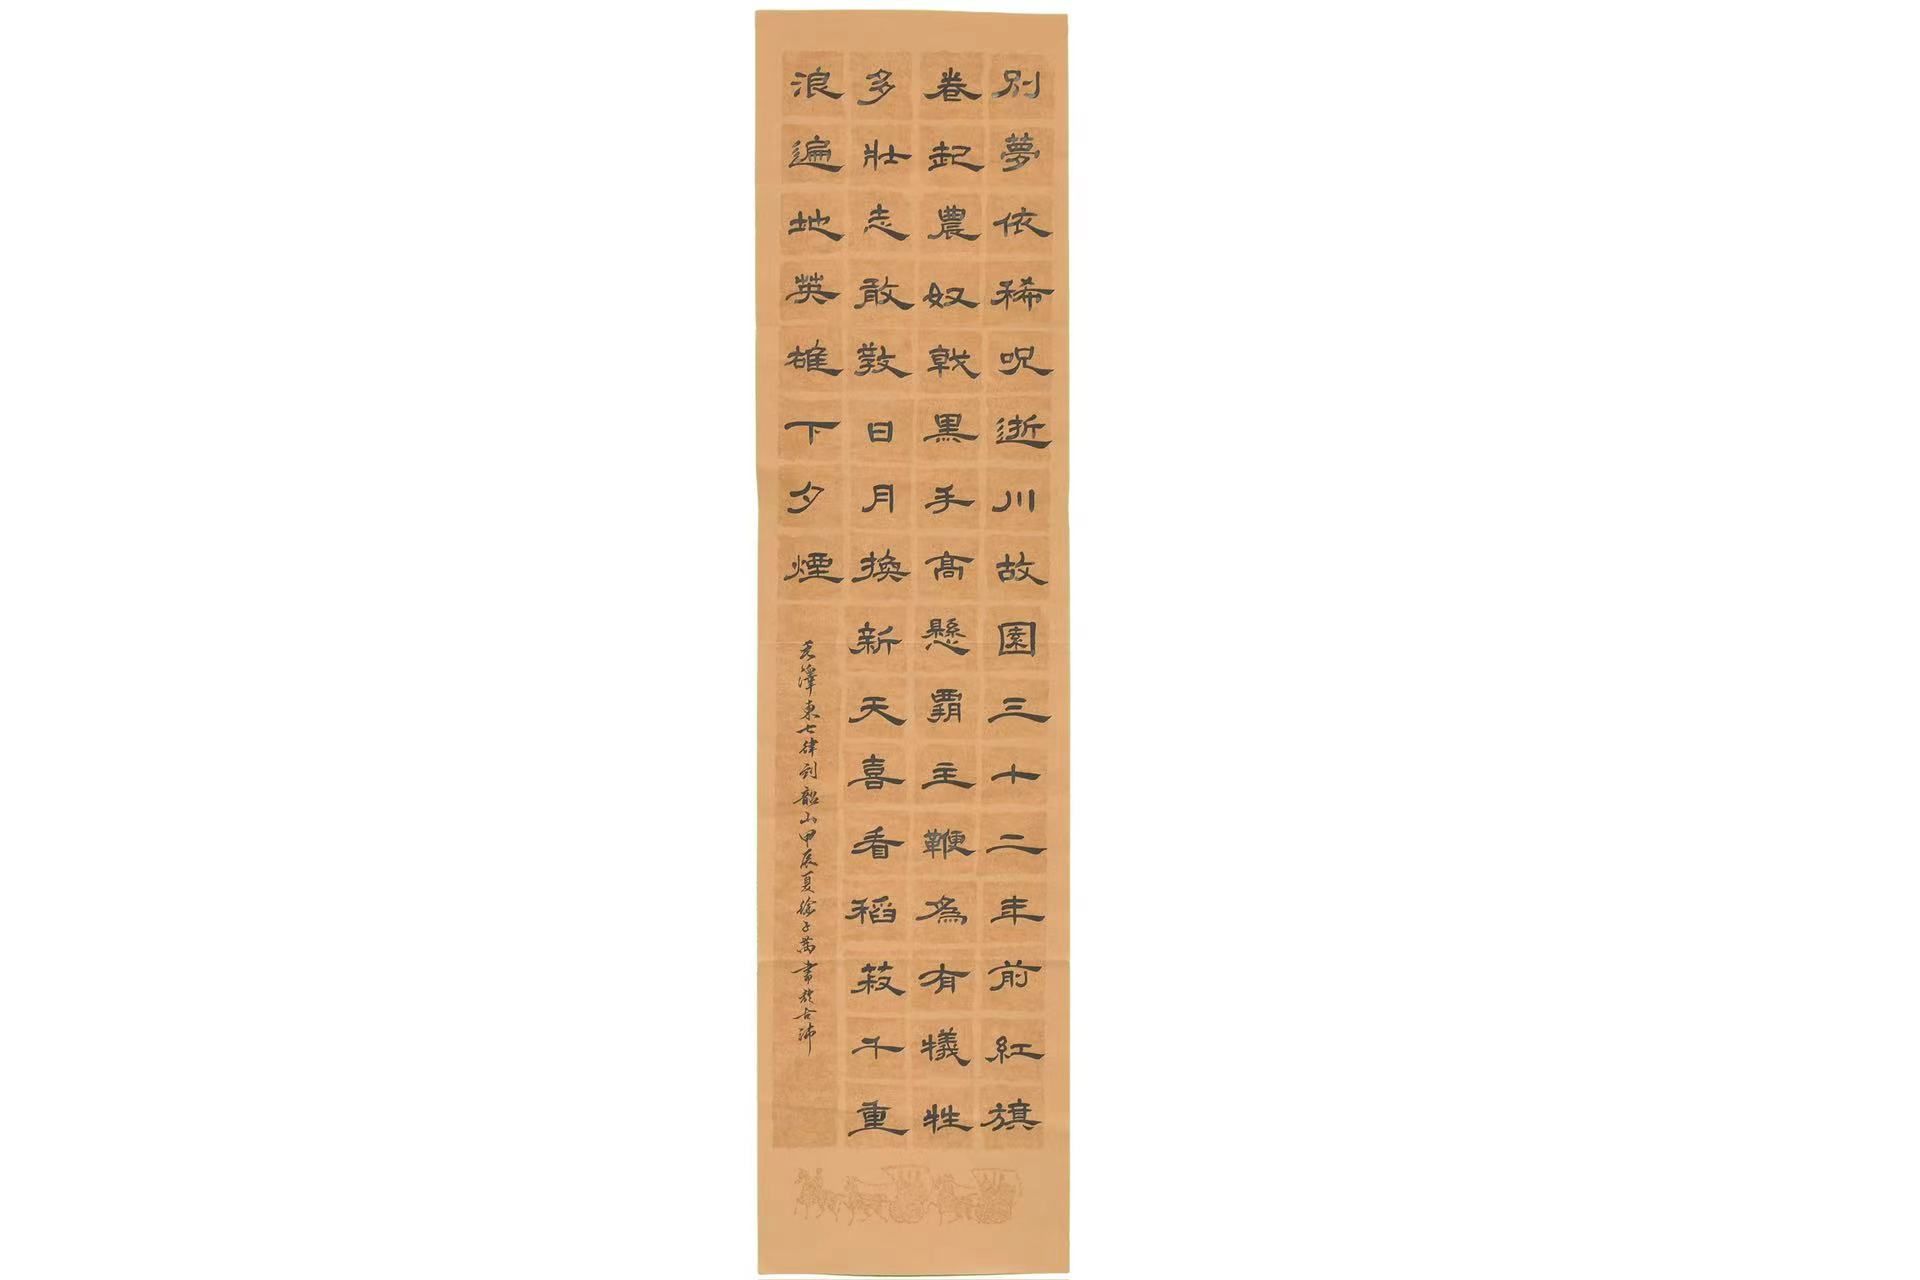 別夢依稀呪逝川故園三十二年前紅旗
卷起農奴戟黑手高懸霸主鞭為有犧牲
多壯志敢教日月換新天喜看稻菽千重
浪遍地英雄下夕煙
毛澤東七律到韶山甲辰夏徐子茜書於古沛